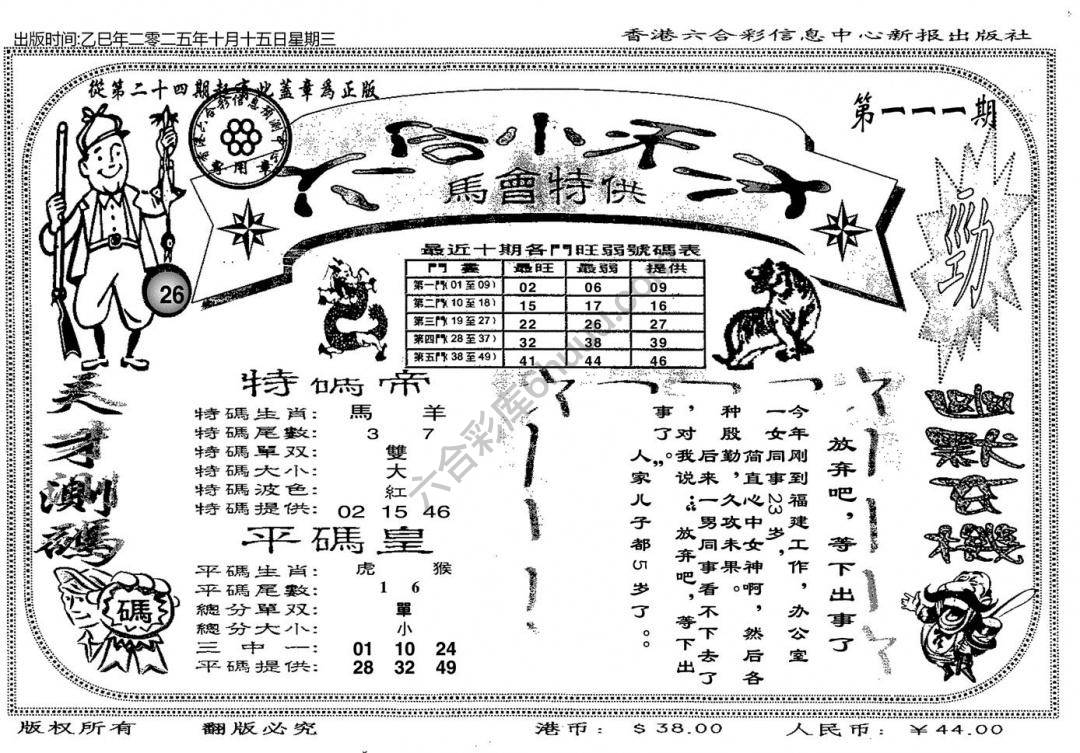 出版时间:乙巳年二零二五年十月十五日星期三
香港六合彩信息中心新报出版社
從第二十四期起有此蓋章爲正版
第一一一期
馬會特供
26
勁
最近十期各門旺弱號碼表
門畫 最旺 最弱 提供
第一門(01至09) 02 06 09
第二門(10至18) 15 17 16
第三門(19至27) 22 26 27
第四門(28至37) 32 38 39
第五門(38至49) 41 44 46
天才測碼
碼
特碼帝
特碼生肖: 馬 羊
特碼尾數: 3 7
特碼單双: 雙
特碼大小: 大
特碼波色: 紅
特碼提供: 02 15 46
平碼皇
平碼生肖: 虎 猴
平碼尾數: 1 6
總分單双: 單
總分大小: 小
三中一: 01 10 24
平碼提供: 28 32 49
放弃吧，等下出事了
今年刚到福建工作，办公室
一女同事23岁，
简直心中女神啊，然后各
种殷勤，久攻未果。
后来一男同事看不下去了
，对我说：“放弃吧，等下出
事了”。
人家儿子都5岁了。。
六合彩库6huuu.com
版权所有
翻版必究
港币: $38.00
人民币: ¥44.00